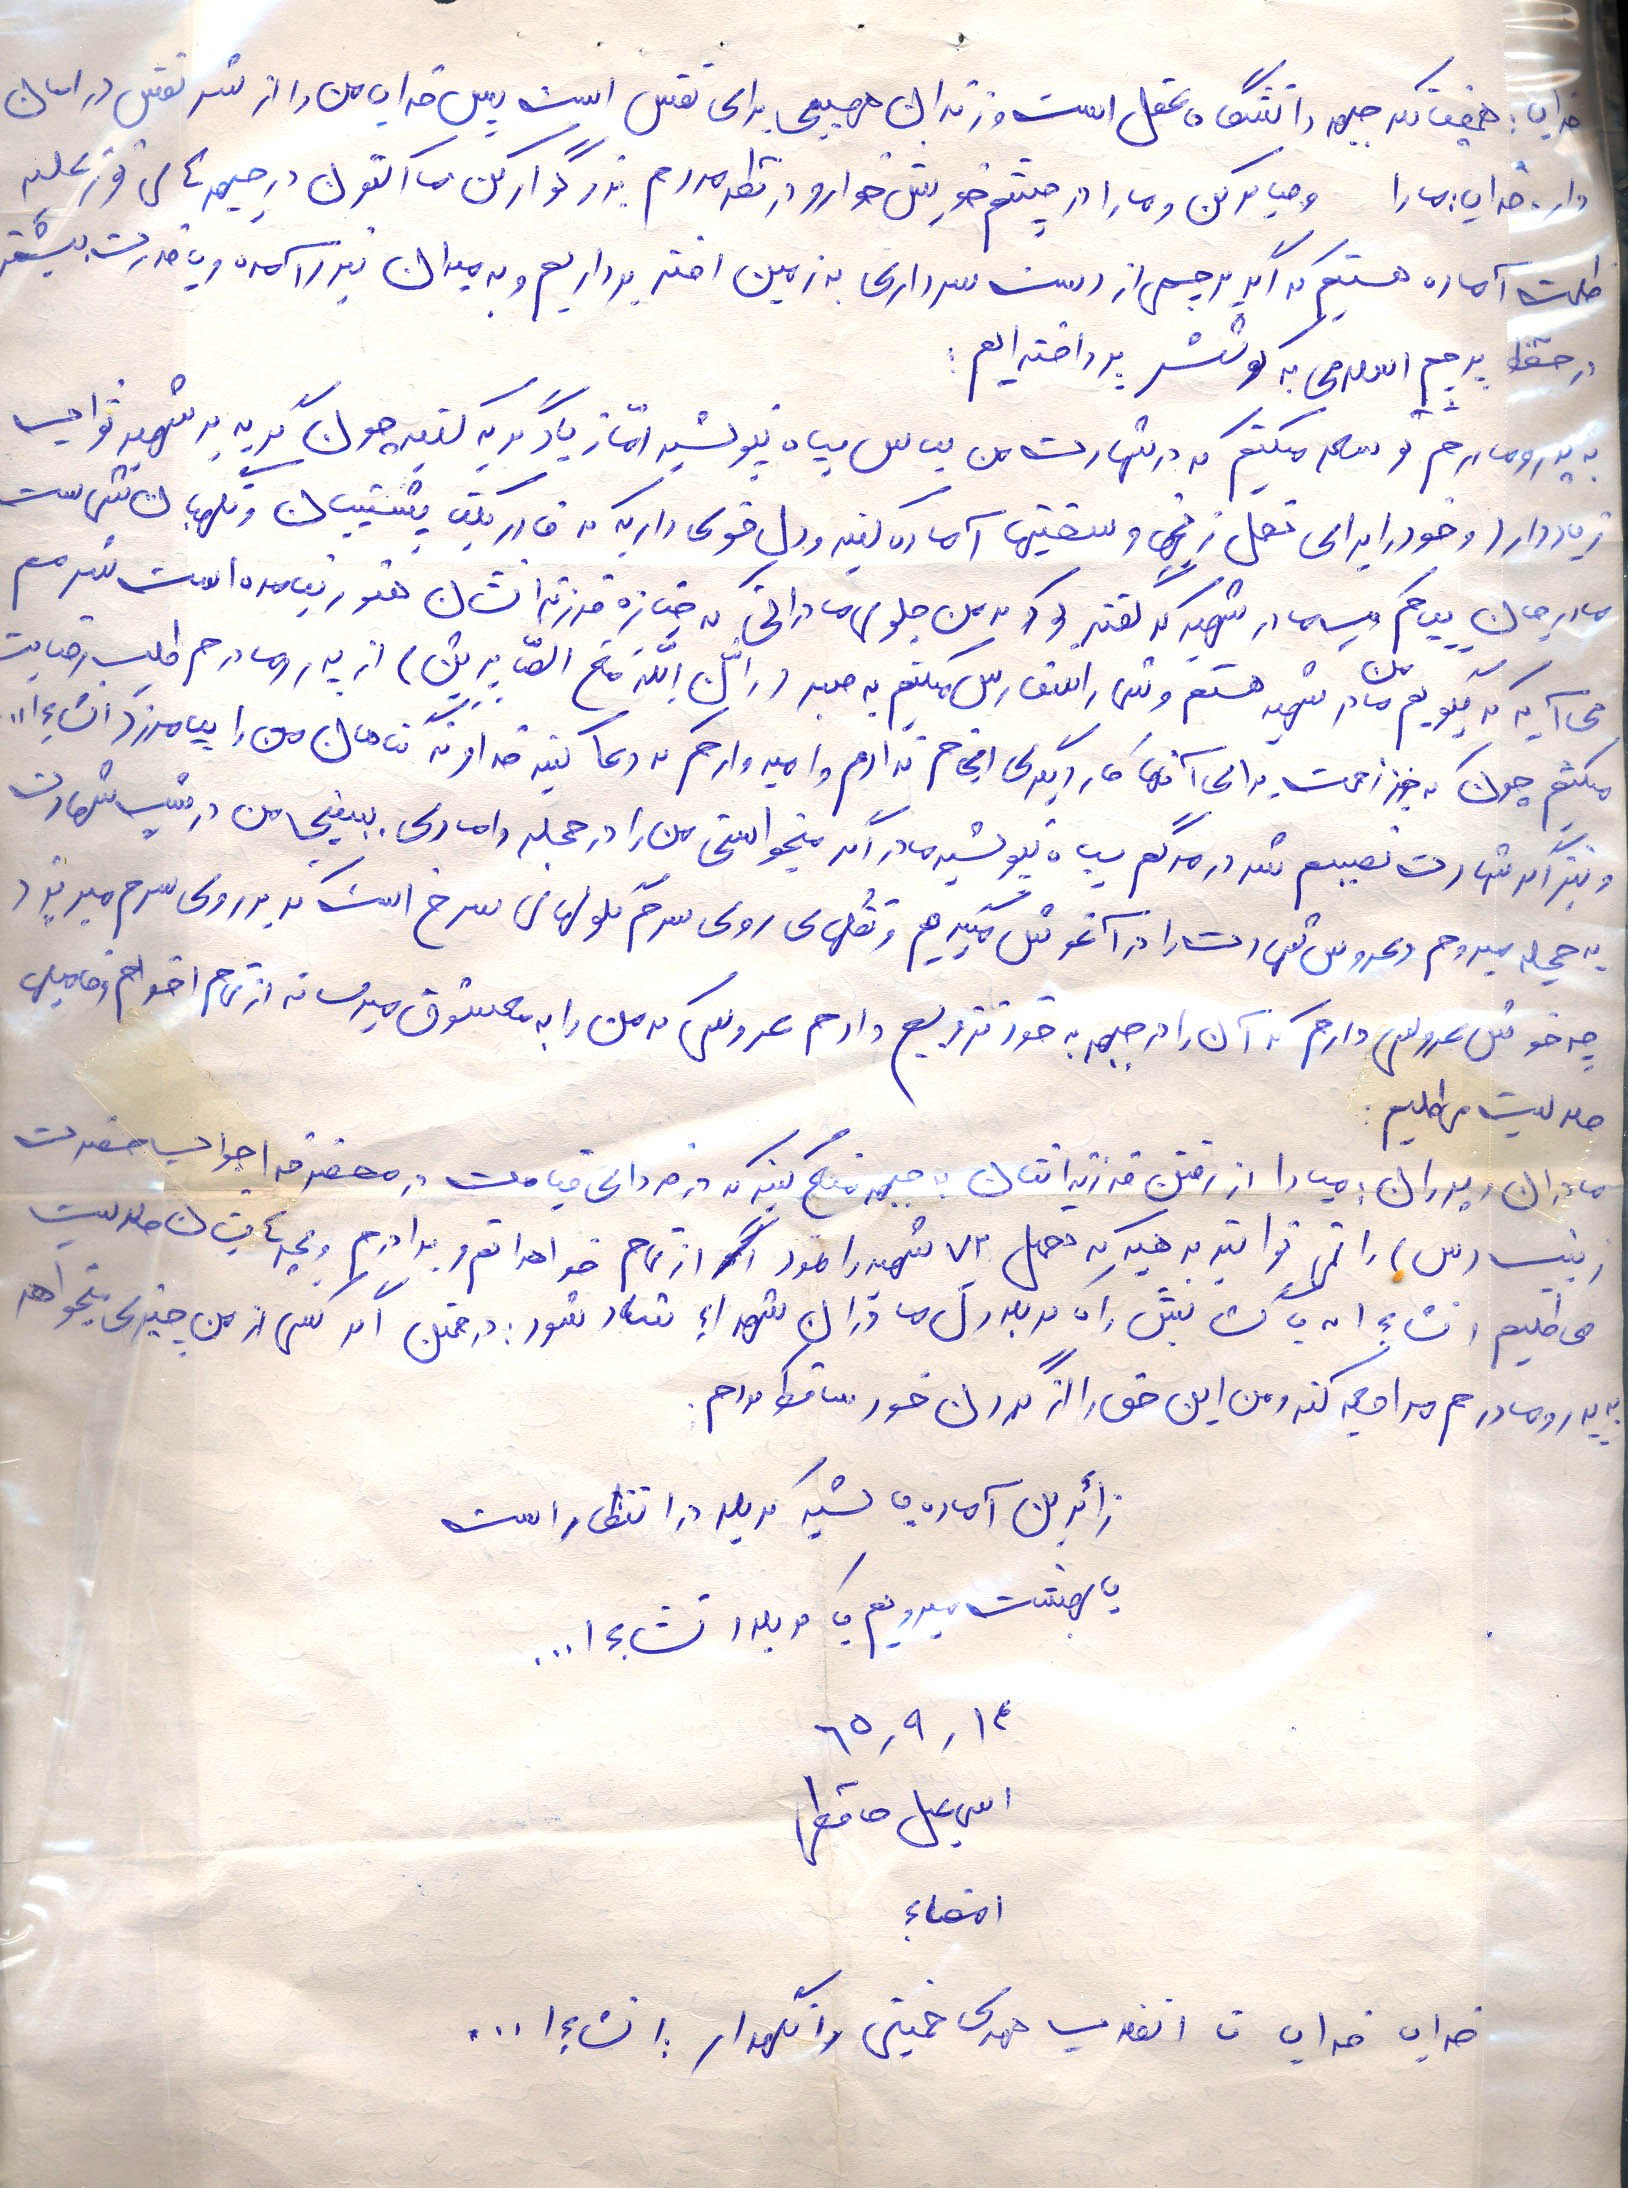 خدایا: همچنانکه جبهه دانشگاه عقل است و زندان مهیبی برای نفس است پس خدایا من را از شر نفس در امان
دار. خدایا: ما را وصابر کن و ما را در چشم خویش خوار و در نظر مردم بزرگوار کن ما اکنون در جبهه های نور علیه
ظلمت آماده هستیم که اگر پرچمی از دست سرداری به زمین افتد برداریم و به میدان نبرد آمده و با قدرت بیشتر
در حفظ پرچم اسلامی به کوشش پرداخته ایم:
به پدر و مادرم توصیه میکنم که در شهادت من لباس سیاه نپوشید امّا زیاد گریه کنید چون گریه بر شهید ثواب
زیاد دارد و خود را برای تحمل زخمها و سختیها آماده کنید و دل قوی دارید که قادر یکتا پشتیبان و نگهبان شماست
مادر جان پیام مادر شهید که گفته بود به من جلوی مادرانی که جنازه فرزندانشان هنوز نیامده است شرمم
می آید که بگویم من مادر شهید هستم و شما را سفارش میکنم به صبر (انّ الله مع الصّابرین) از پدر و مادرم طلب رضایت
میکنم چون که به جز زحمت برای آنها کار دیگری انجام ندادم و امیدوارم که دعا کنید خداوند گناهان من را بیامرزد انشاءا...
و نیز اگر شهادت نصیبم شد در مرگم سیاه نپوشید مادر اگر میخواستی من را در حجله دامادی ببینی من در شب شهادت
به حجله میروم و عروس شهادت را در آغوش میگیرم و نقلهای روی سرم گلوله های سرخ است که بر روی سرم میریزد
چه خوش عروسی دارم که آن را در جبهه به خود تزویج دادم عروسی که من را به معشوق میرساند از تمام اقوام و فامیلها
حلالیت میطلبم:
مادران و پدران: مبادا از رفتن فرزندانتان به جبهه منع کنید که در فردای قیامت در محضر خدا جواب حضرت
زینب (س) را نمی توانید بدهید که تحمل ۷۲ شهید را نمود از تمام خواهرانم و برادرم و بچه هایشان حلالیت
می طلبم انشاءا که با گشایش راه کربلا دل مادران شهداء شاد شود: در ضمن اگر کسی از من چیزی میخواهد
به پدر و مادرم مراجعه کند و من این حق را از گردن خود ساقط کردم.
زائرین آماده باشید کربلا در انتظار است
یا بهشت میرویم یا کربلا انشاءا...
۶۵٫۹٫۱۴
اسماعیل حافظی
امضاء
خدایا خدایا تا انقلاب مهدی خمینی را نگهدار: انشاءا...